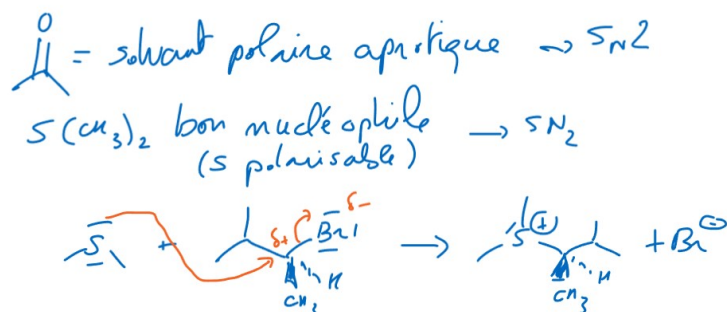 O
= solvant polaire aprotique → SN2
S(CH3)2 bon nucléophile → SN2
(S polarisable)
S + δ+ Br δ- → S⊕ + Br⊖
H CH3 H CH3